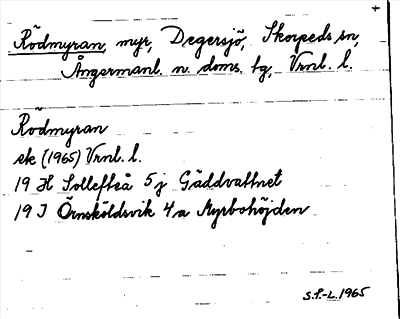 +
Rödmyran, myr, Degersjö, Skorpeds sn,
Ångermanl. n. doms. tg, Vrnl. l.
Rödmyran
ek (1965) Vrnl. l.
19 H Sollefteå 5 j Gäddvattnet
19 I Örnsköldsvik 4 a Myrbohöjden
S.P.-L. 1965